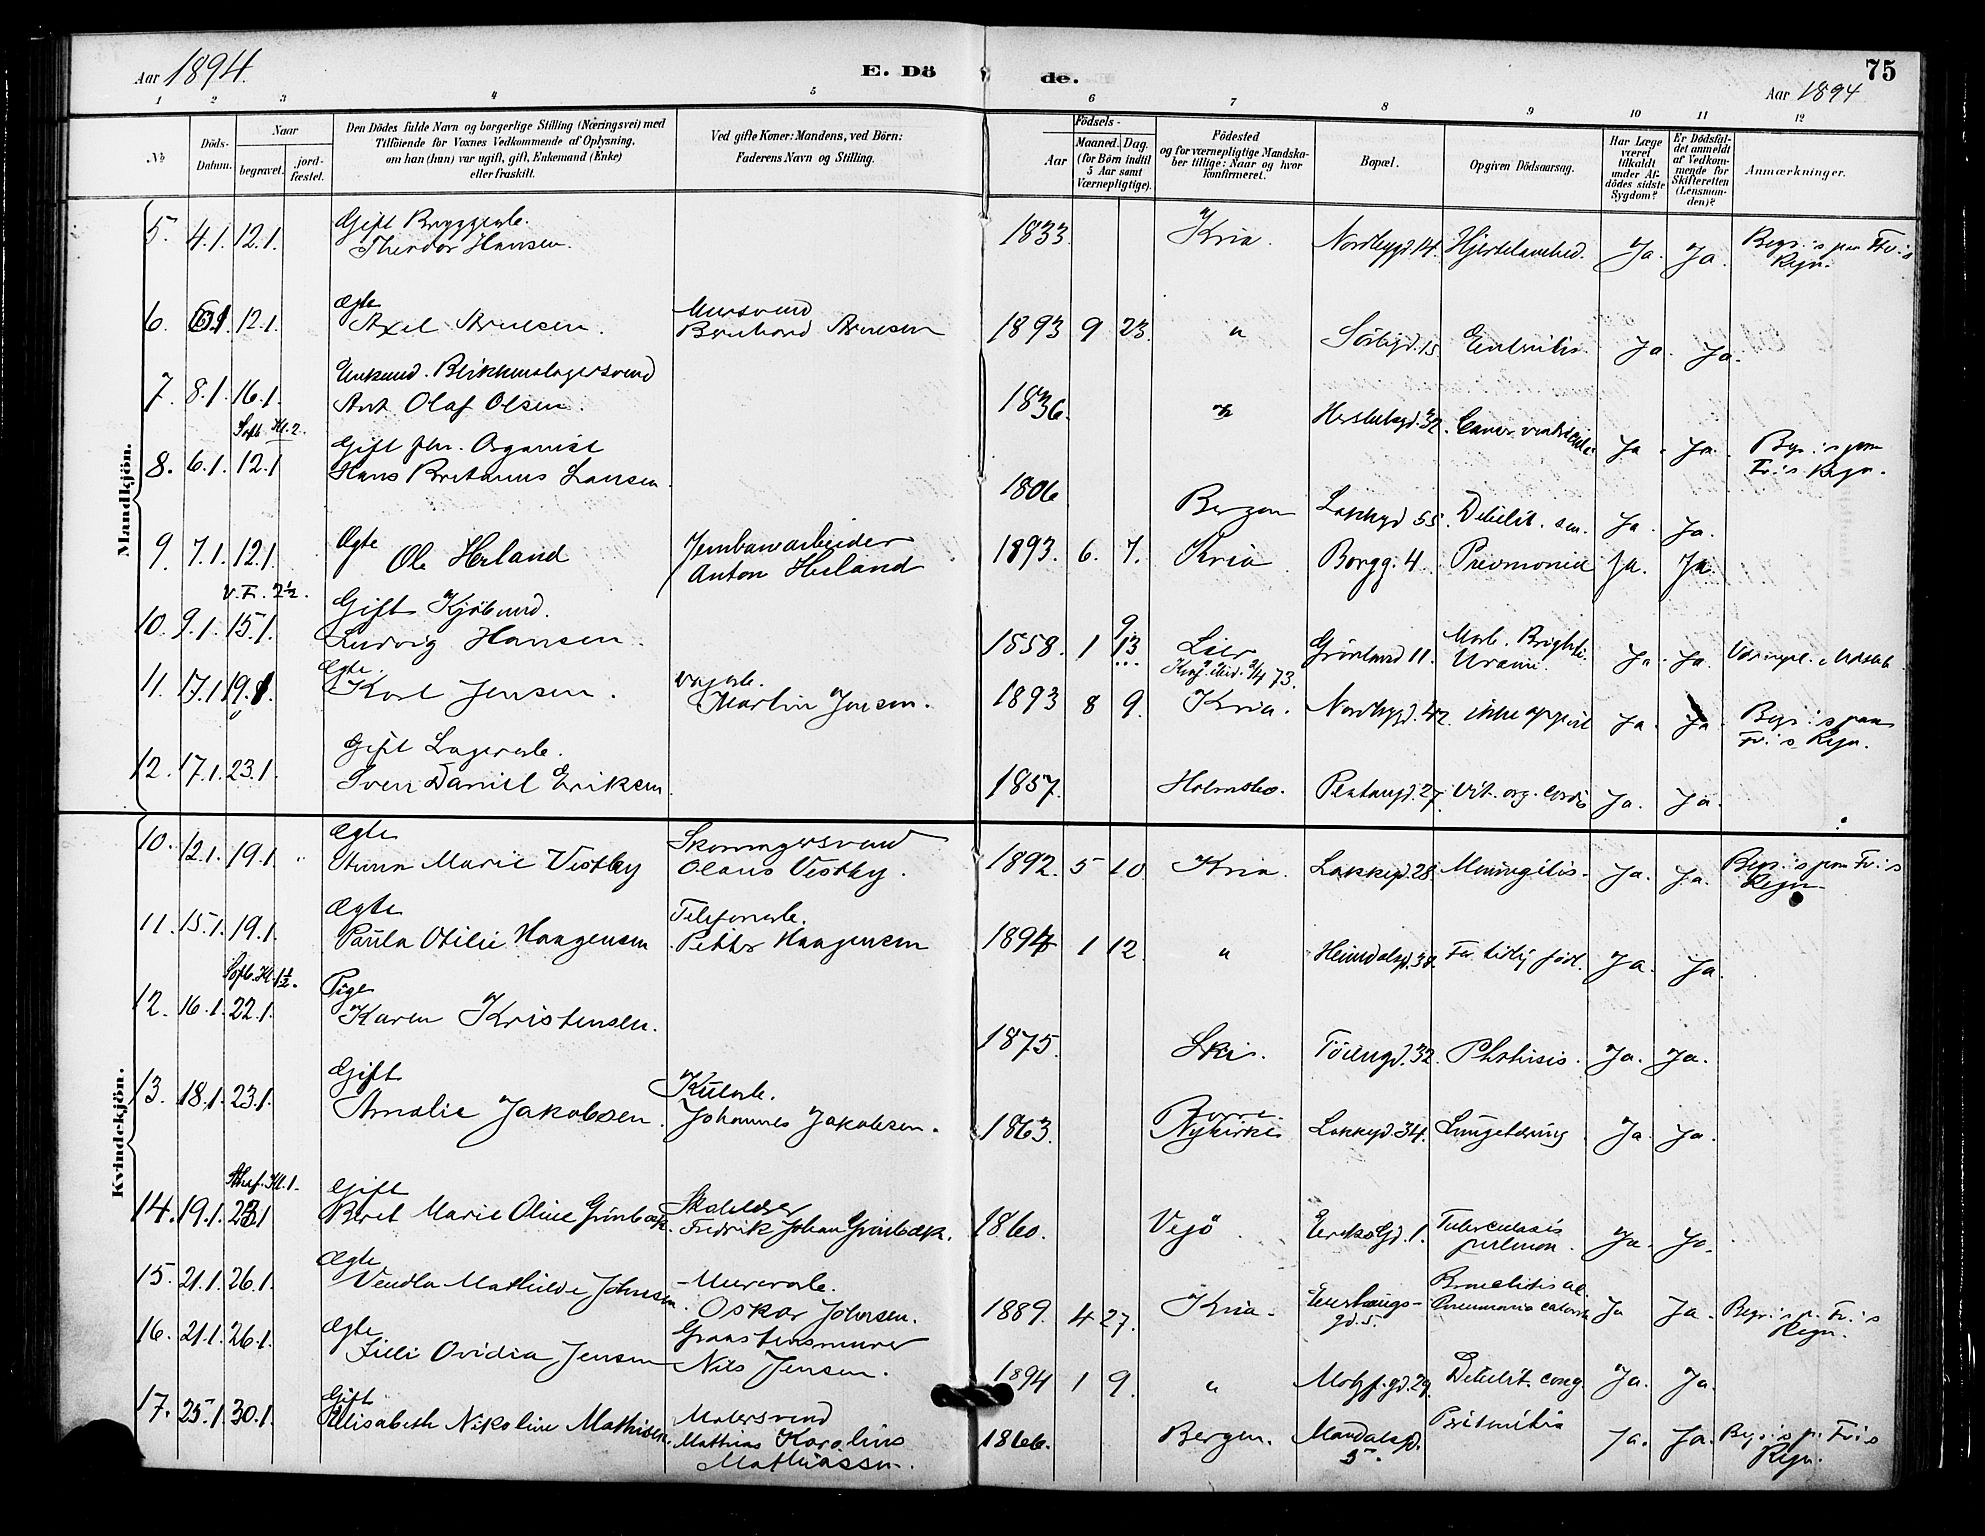 Aar 1894.
E. Dö
de.
75
Aar 1894
1 2 3 4 5 6 7 8 9 10 11 12
No
Döds-Datum.
Naar
begravet.
jord-fæstet.
Den Dödes fulde Navn og borgerlige Stilling (Næringsvei) med
Tilföiende for Voxnes Vedkommende af Oplysning,
om han (hun) var ugift, gift, Enkemand (Enke)
eller fraskilt.
Ved gifte Koner: Mandens, ved Börn:
Faderens Navn og Stilling.
Födsels-
Aar
Maaned. Dag.
(for Börn indtil
5 Aar samt
Værnepligtige).
Födested
og for værnepligtige Mandska-
ber tillige: Naar og hvor
konfirmeret.
Bopæl.
Opgiven Dödsaarsag.
Har Læge
været
tilkaldt
under Af-
dödes sidste
Sygdom?
Er Dödsfal-
det anmeldt
af Vedkom-
mende for
Skifteretten
(Lensman-
den)?
Anmærkninger.
Mandkjön.
5. 4.1. 12.1. Gift Bryggerarb.
Theodor Hansen. 1833. Kria. Nordbygd. 14. Hjertelamhed. Ja. Ja. Begr: s paa Fv: s
Regn.
6. 12.1. Ægte
Axel Arnesen. Mursvend
Bernhard Arnesen 1893 9 23. " Sörbygd. 15 Enteritis. Ja. Ja.
7. 8.1. 16.1. Enkemd. Blikkenslagersvend
Ant. Olaf Olsen. 1836. " Herslebsgd. 32. Cancer ventriculi Ja. Ja. Begr: s paa
Fv: s. Regn.
Sofb. Kl. 2.
8. 6.1. 12.1 Gift fhv. Organist
Hans Britanus Hansen. 1806 Bergen Lakkegd 55. Debilit. sen. Ja. Ja.
9. 7.1. 12.1. Ægte
Ole Heland Jernbanearbeider
Anton Heland 1893. 6. 7. Kria Borgg. 4. Pneumonia Ja. Ja.
V. F. 2½
10. 9.1. 15.1. Gift Kjöbmd.
Ludvig Hansen. 1858. 1 13 9 Lier Grönland 11. Morb. Brightii.
Uræmi. Ja. Ja.
11. 17.1 19.1 Ægte.
Karl Jensen. Martin Jensen. 1893 8 9. Kria. Nordbygd. 42. ikke opgivet Ja. Ja. Begr: s paa
Fv: s. Regn.
12. 17.1. 23.1. Gift Lagerarb.
Sven Daniel Eriksen. 1857. Holmsbo. Platougd. 27. Vit. org. cordis Ja. Ja.
Kvindekjön.
10. 12.1. 19.1. Ægte
Anna Marie Vestby Skomagersvend
Olaus Vestby. 1892. 5 10. Kria. Lakkegd. 28. Meningitis. Ja. Ja. Begr: s paa Fv: s
Regn
11. 15.1. 19.1. Ægte
Paula Otilie Haagensen Telefonarb.
Petter Haagensen 1894 1 12. " Heimdalsgd. 38. For tidlig född. Ja. Ja.
Sofb. Kl. 1½.
12. 16.1. 22.1. Pige
Karen Kristensen. 1875. Ski. Töiengd. 32. Phthisis. Ja. Ja.
13. 18.1. 23.1. Gift
Amalia Jakobsen. Kularb.
Johannes Jakobsen. 1863. Borre.
Nykirke Lakkegd. 34. Lungetæring Ja. Ja.
Kl. 1.
14. 19.1. 23.1 Gift
Beret Marie Oline Grönbæk. Skolelærer
Fredrik Johan Grönbæk. 1860. Vejö Eriksgd. 1. Tuberculosis
pulmon. Ja. Ja.
15. 21.1. 26.1. Ægte
Vendla Mathilde Johnsen. Murerarb.
Oskar Johnsen. 1889. 4 27. Kria. Enerhaugs-
gd. 5. Bronchitis ac.
Pneumonia catarrh Ja Ja. Begr: s p. Fv: s
Regn.
16. 21.1. 26.1. Ægte
Lilli Ovidia Jensen Graastensmurer
Nils Jensen. 1894 1 9. " Motzf. gd. 29. Debilit. cong Ja. Ja.
17. 25.1. 30.1. Gift
Elisabeth Nikoline Mathisen. Malersvend
Mathias Karolius
Mathiassen. 1866. Bergen. Mandalsgd.
5. Peritonitis Ja. Ja. Begr: s p. Fv: s
Regn.